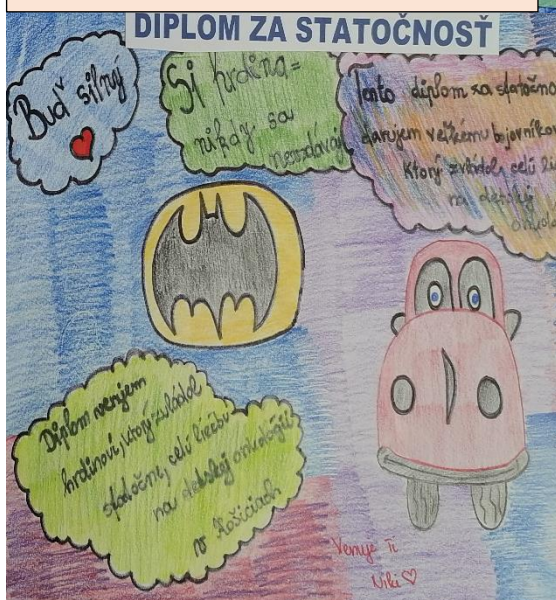 DIPLOM ZA STATOČNOSŤ
Buď silný
Si hrdina =
nikdy sa
nevzdávaj
Tento diplom za statočno
darujem veľkému bojovníko
Ktorý zvládol celú li
na detskej
onkolo
Diplom venujem
hrdinovi, ktorý zvládol
statočne, celú liečbu
na detskej onkológii
v Košiciach
Venuje Ti
Niki